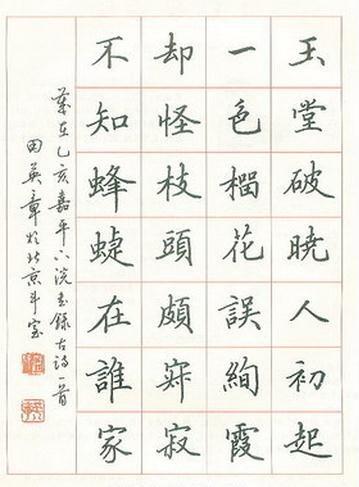 玉堂破曉人初起
一色榴花誤絢霞
却怪枝頭頗寂
不知蜂蜨在誰家
歲在乙亥嘉平下浣書錄古詩一首
田英章於北京斗室